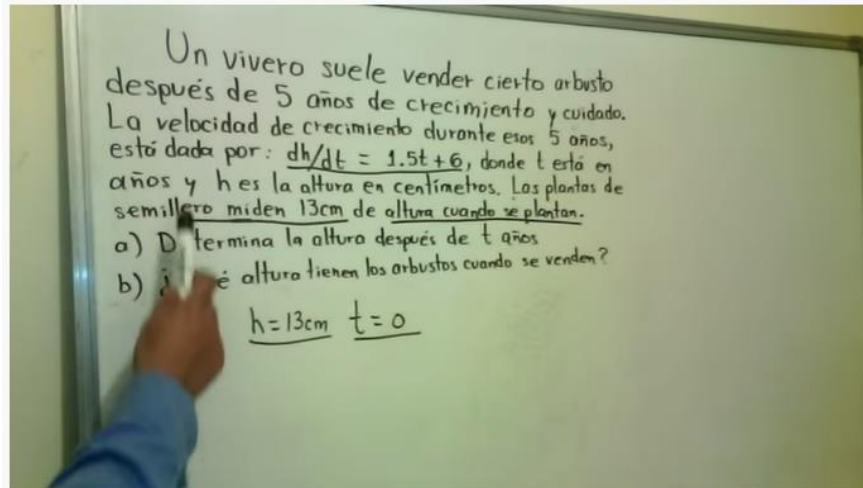 Un vivero suele vender cierto arbusto
después de 5 años de crecimiento y cuidado.
La velocidad de crecimiento durante esos 5 años,
está dada por: dh/dt = 1.5t + 6, donde t está en
años y h es la altura en centímetros. Las plantas de
semillero miden 13cm de altura cuando se plantan.
a) D termina la altura después de t años
b) ¿ é altura tienen los arbustos cuando se venden?
h = 13cm t = 0